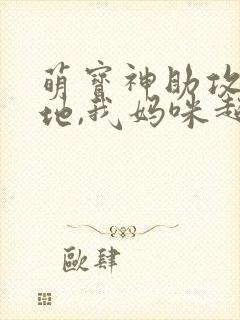 萌寶神助攻
地,我媽咪超
歐肆